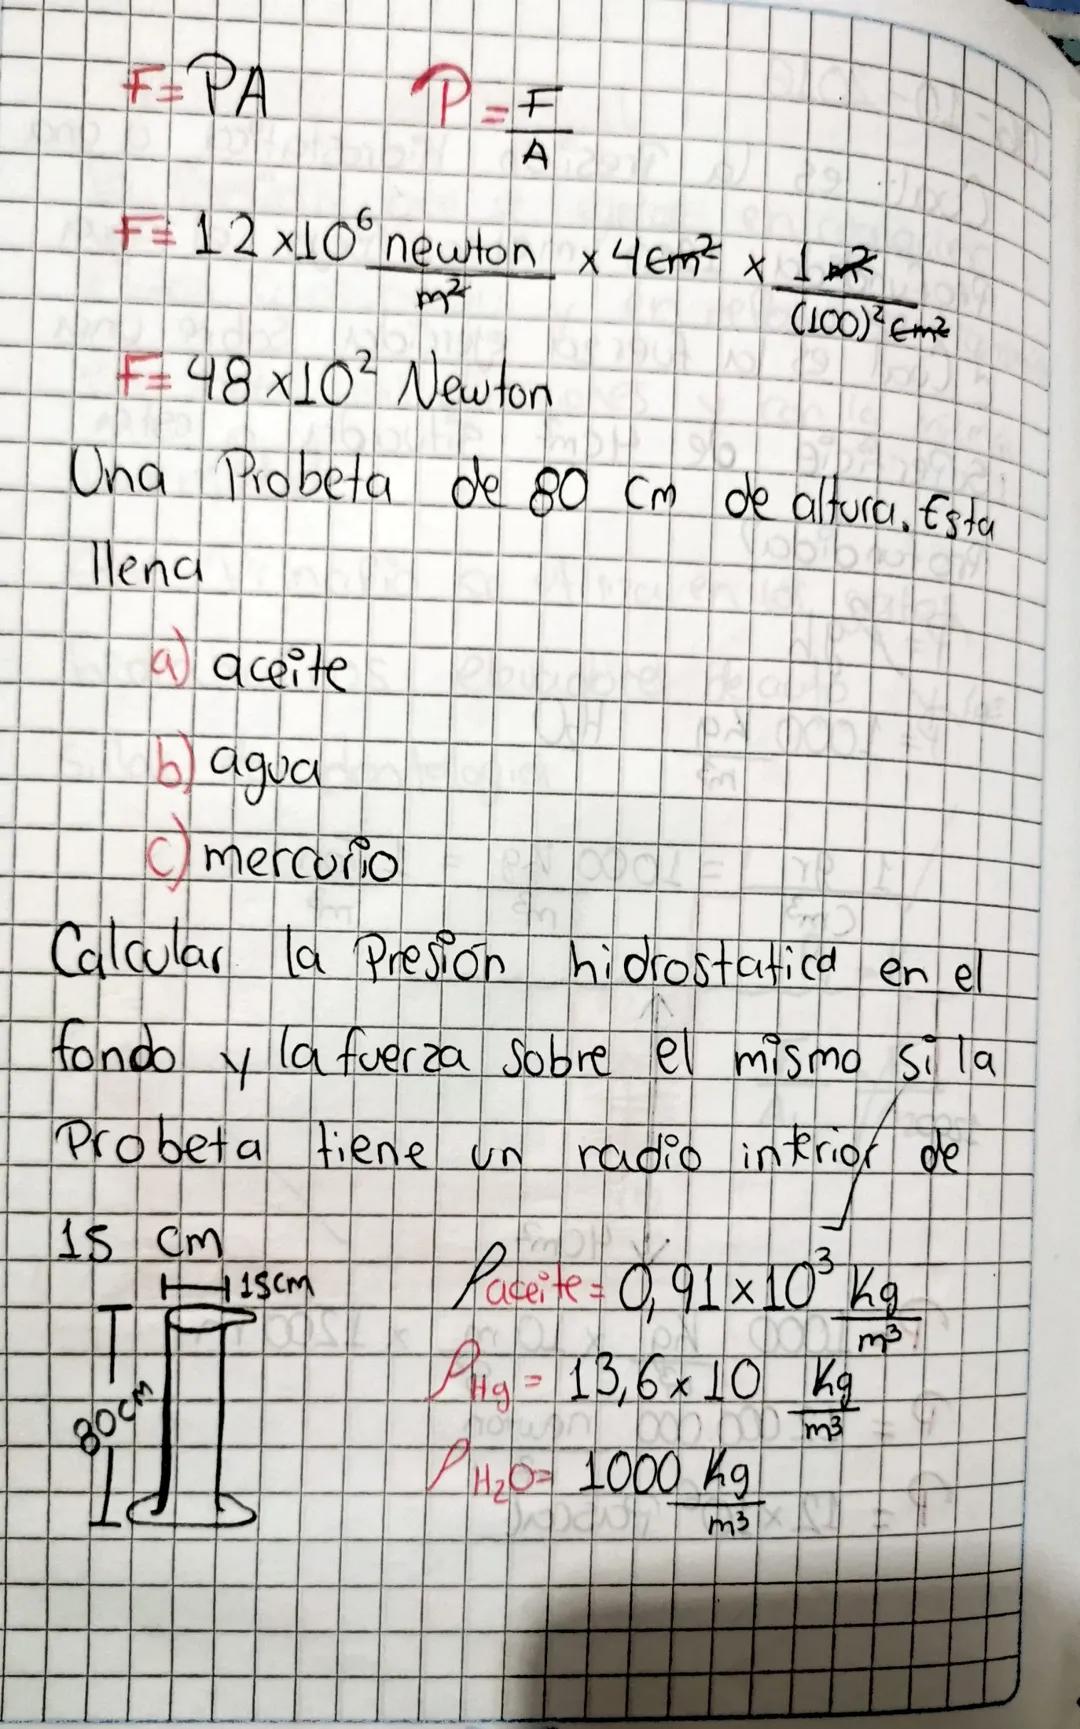 F= PA P = F/A
F= 12 x10⁶ newton/m² x 4cm² x 1 m²/(100)² cm²
F= 48 x10² Newton
Una Probeta de 80 cm de altura. Esta
llena
a) aceite
b) agua
c) mercurio
Calcular la Presión hidrostatica en el
fondo y la fuerza sobre el mismo si la
Probeta tiene un radio interior de
15 cm
15cm
80cm
ρaceite = 0,91 x 10³ Kg/m³
ρHg = 13,6 x 10 Kg/m³
ρH₂O = 1000 Kg/m³